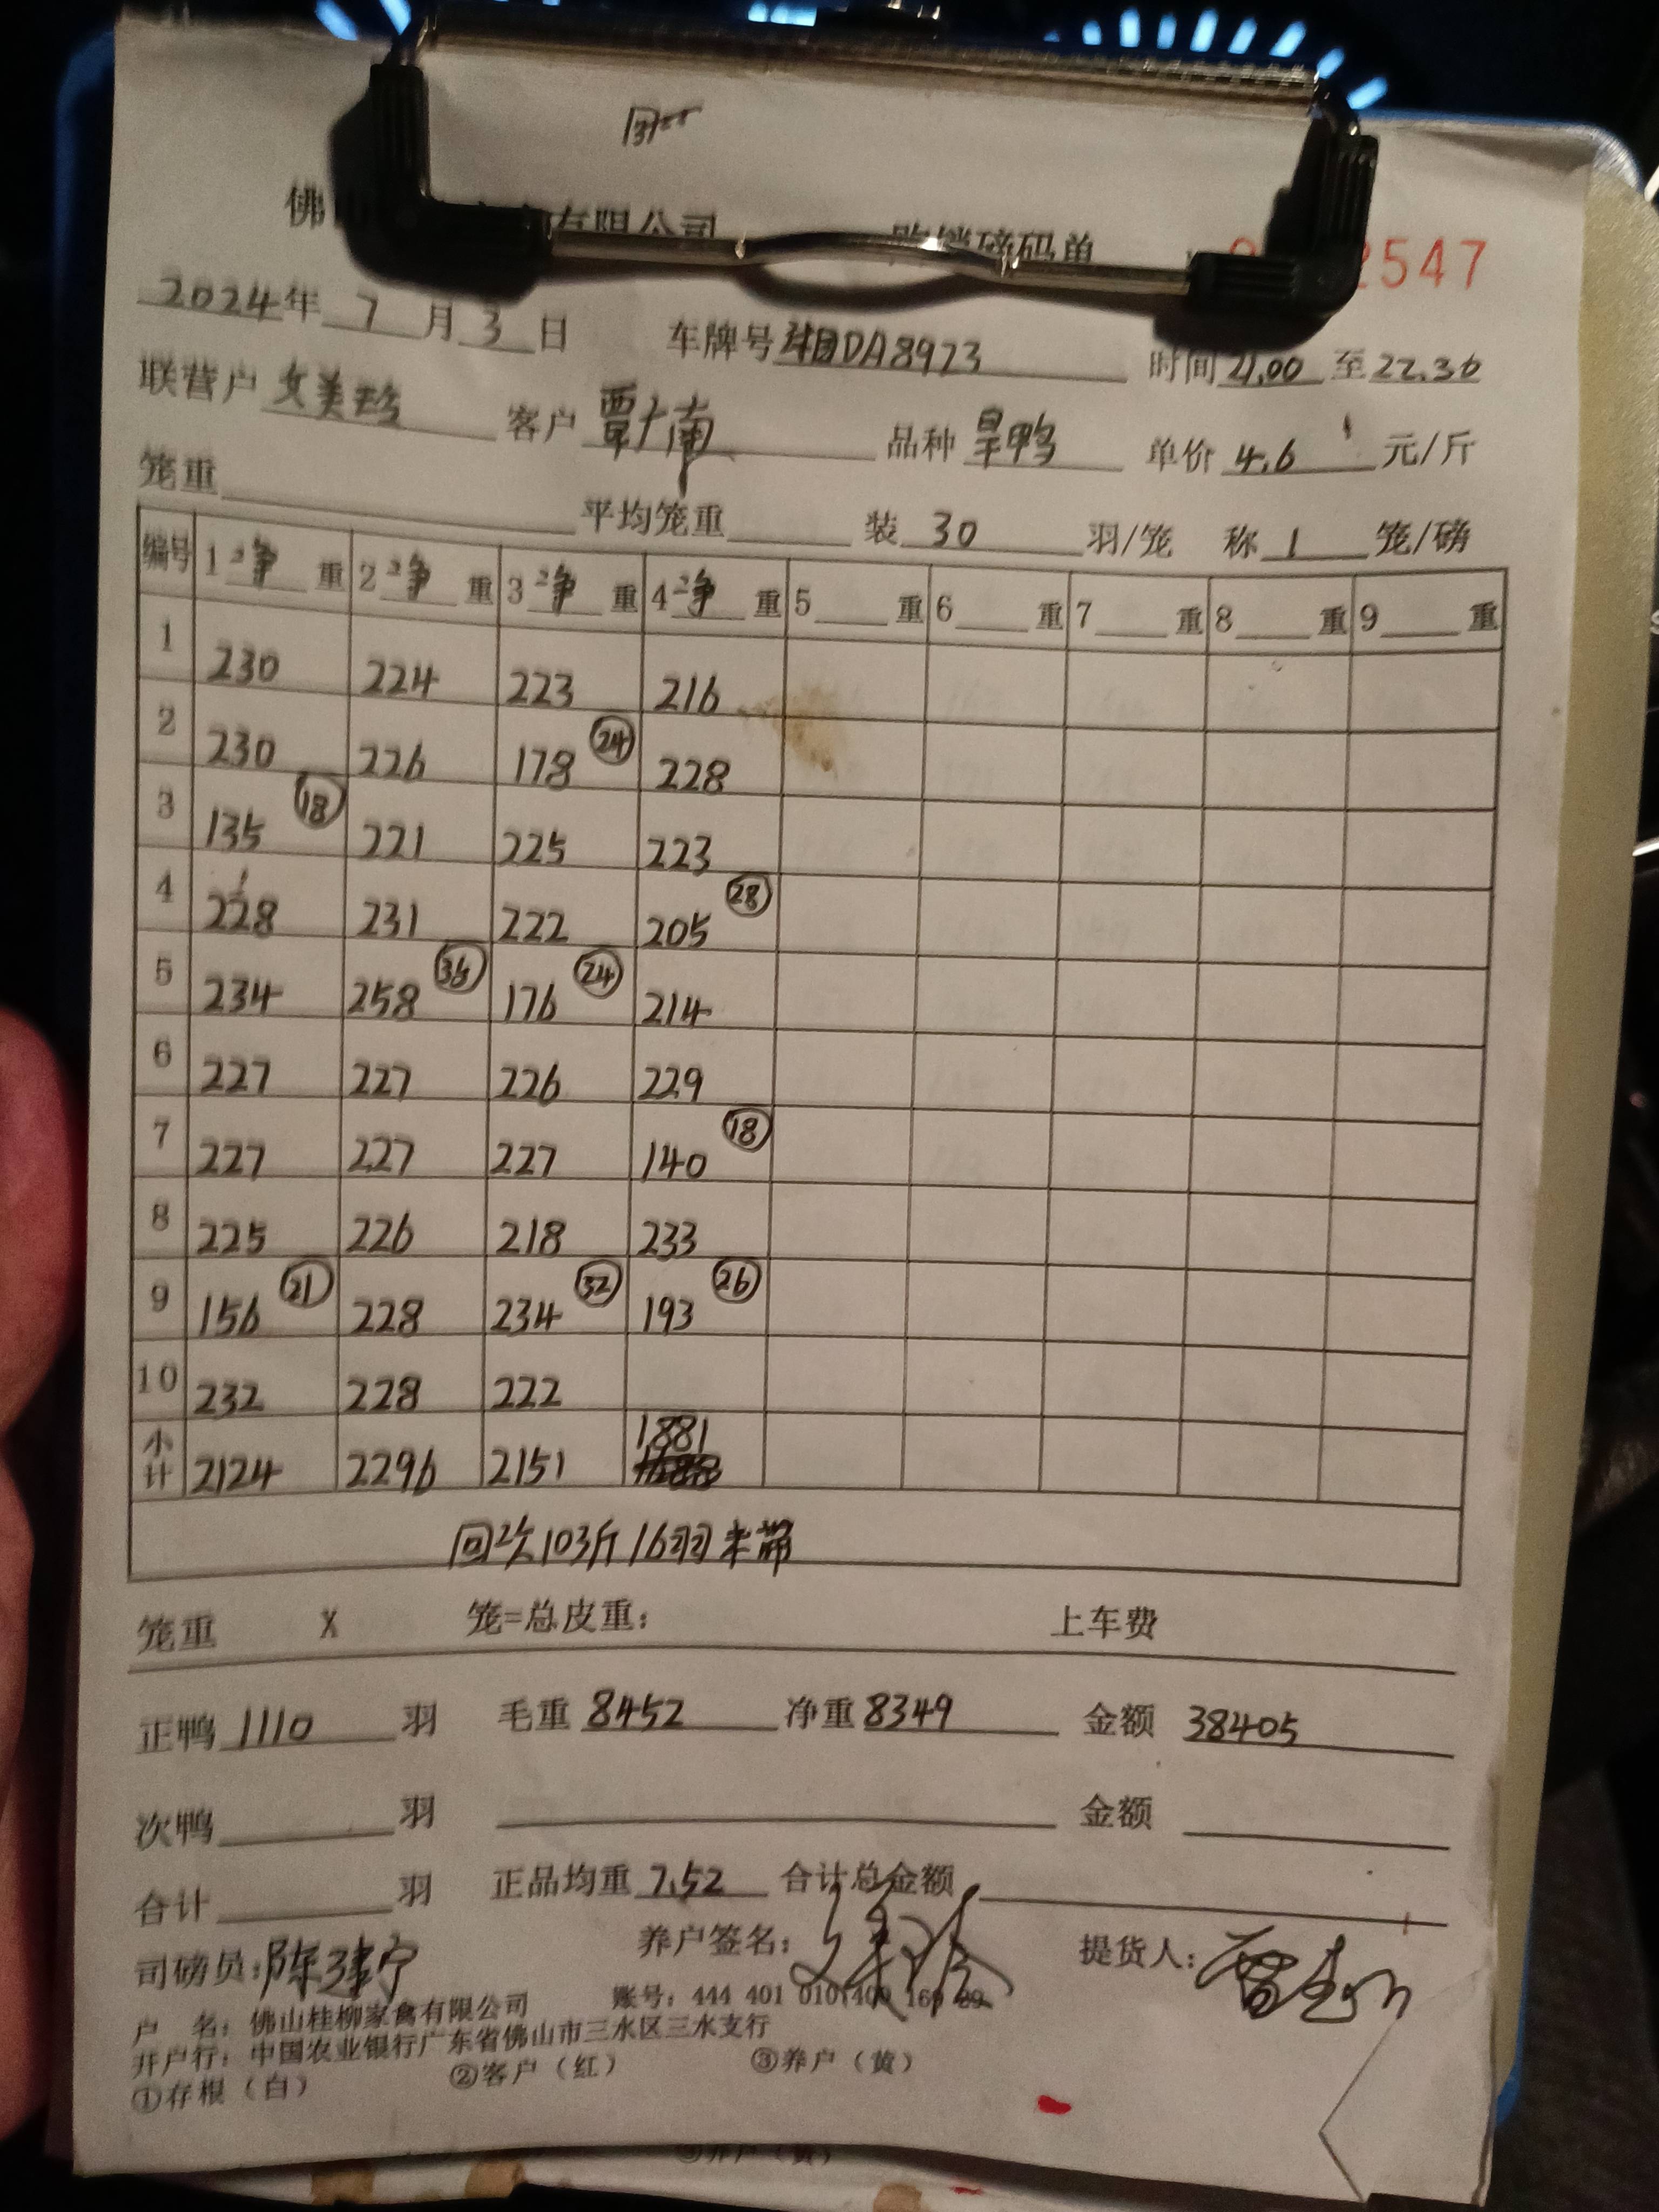 佛山 有限公司 购销磅码单 2547
2024年7月3日 车牌号 DA8973 时间21.00至22.30
联营户 文美玲 客户 覃广南 品种 旱鸭 单价 4.6 元/斤
笼重 平均笼重 装 30 羽/笼 称 1 笼/磅
编号 1 净 重 2 净 重 3 净 重 4 净 重 5 重 6 重 7 重 8 重 9 重
1 230 224 223 216
2 230 226 178 ㉔ 228
3 135 ⑱ 221 225 223
4 228 231 222 205 ㉘
5 234 258 ㊱ 176 ㉔ 214
6 227 227 226 229
7 227 227 227 140 ⑱
8 225 226 218 233
9 156 ㉑ 228 234 ㉜ 193 ㉖
10 232 228 222
小计 2124 2296 2151 1881
回次103斤16羽未带
笼重 X 笼=总皮重： 上车费
正鸭 1110 羽 毛重 8452 净重 8349 金额 38405
次鸭 羽 金额
合计 羽 正品均重 7.52 合计总金额
司磅员：陈建宁 养户签名： 提货人：
户 名：佛山桂柳家禽有限公司 账号：444 401 0101400 169 89
开户行：中国农业银行广东省佛山市三水区三水支行
①存根（白） ②客户（红） ③养户（黄）
③养户（黄）